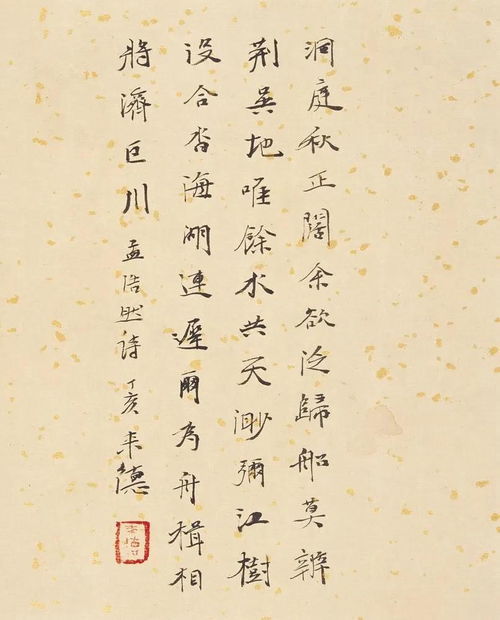 洞庭秋正闊余欲泛歸船莫辨
荆吳地唯餘水共天渺彌江樹
没合沓海湖連遲爾為舟楫相
將濟巨川 孟浩然詩 丁亥 来德